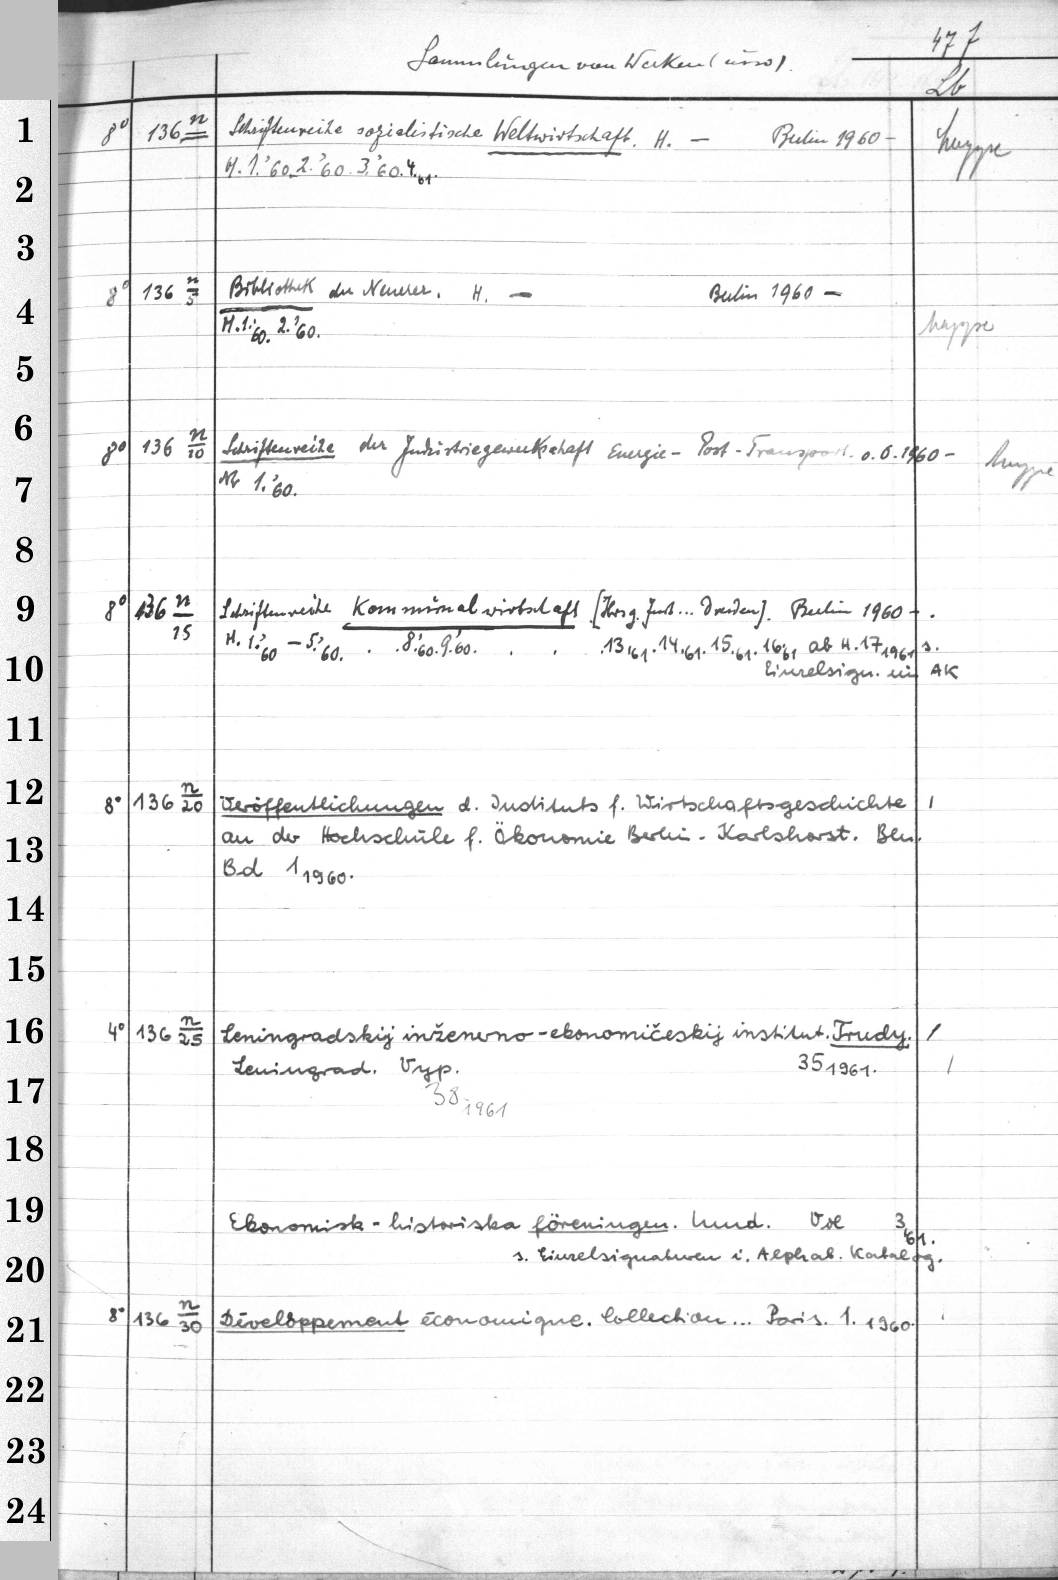 47 f
Sammlungen von Werken (usw).
Lb
1 8° 136 n Schriftenreihe sozialistische Weltwirtschaft. H. — Berlin 1960 — Mappe
H. 1.'60. 2.'60. 3.'60. 4.'61.
2
3
8° 136 n/5 Bibliothek der Neuerer. H. — Berlin 1960 —
4 H. 1.'60. 2.'60. Mappe
5
6
8° 136 n/10 Schriftenreihe der Industriegewerkschaft Energie - Post - Transport. o.O. 1960 — Mappe
7 Nr 1.'60.
8
9 8° 136 n/15 Schriftenreihe Kommunalwirtschaft [Hrsg. Inst... Dresden]. Berlin 1960 - .
H. 1.'60 — 5.'60. . . 8.'60. 9.'60. . . . 13,'61. 14,'61. 15,'61. 16,'61 ab H. 17 1961 s.
10 Einzelsign. im AK
11
12 8° 136 n/20 Veröffentlichungen d. Instituts f. Wirtschaftsgeschichte /
13 an der Hochschule f. Ökonomie Berlin - Karlshorst. Bln.
Bd 1 1960.
14
15
16 4° 136 n/25 Leningradskij inženerno-ekonomičeskij institut. Trudy. /
Leningrad. Vyp. 35 1961. /
17 38 1961
18
19 Ekonomisk - historiska föreningen. Lund. Vol 3,'61.
20 s. Einzelsignaturen i. Alphab. Katalog.
21 8° 136 n/30 Développement économique. Collection... Paris. 1. 1960.
22
23
24